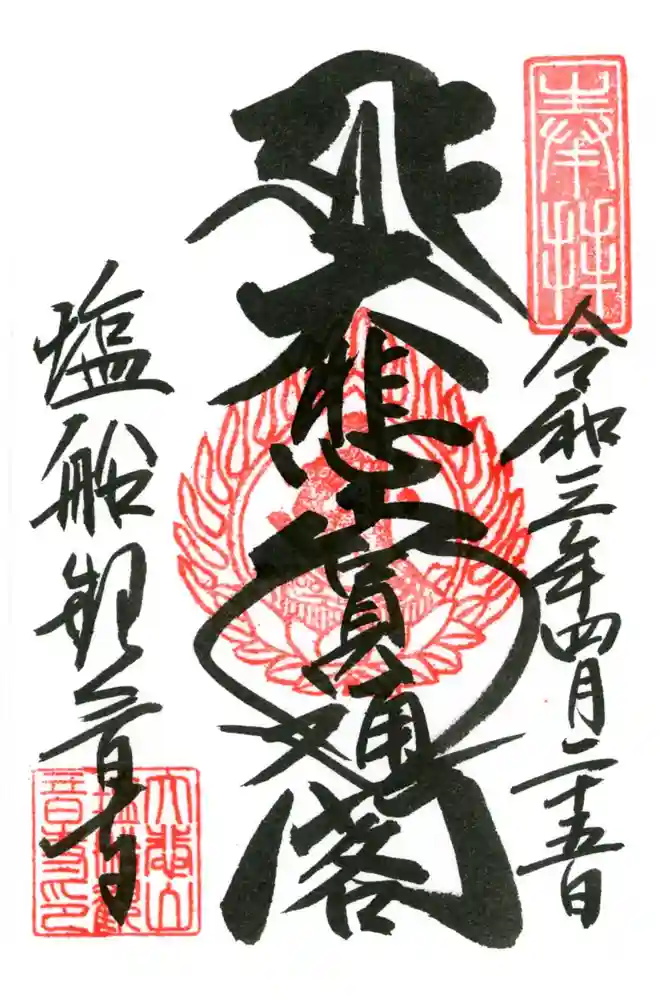 奉拝
令和三年四月二十五日
大悲寳閣
塩船観音寺
大悲山
塩船観
音寺印